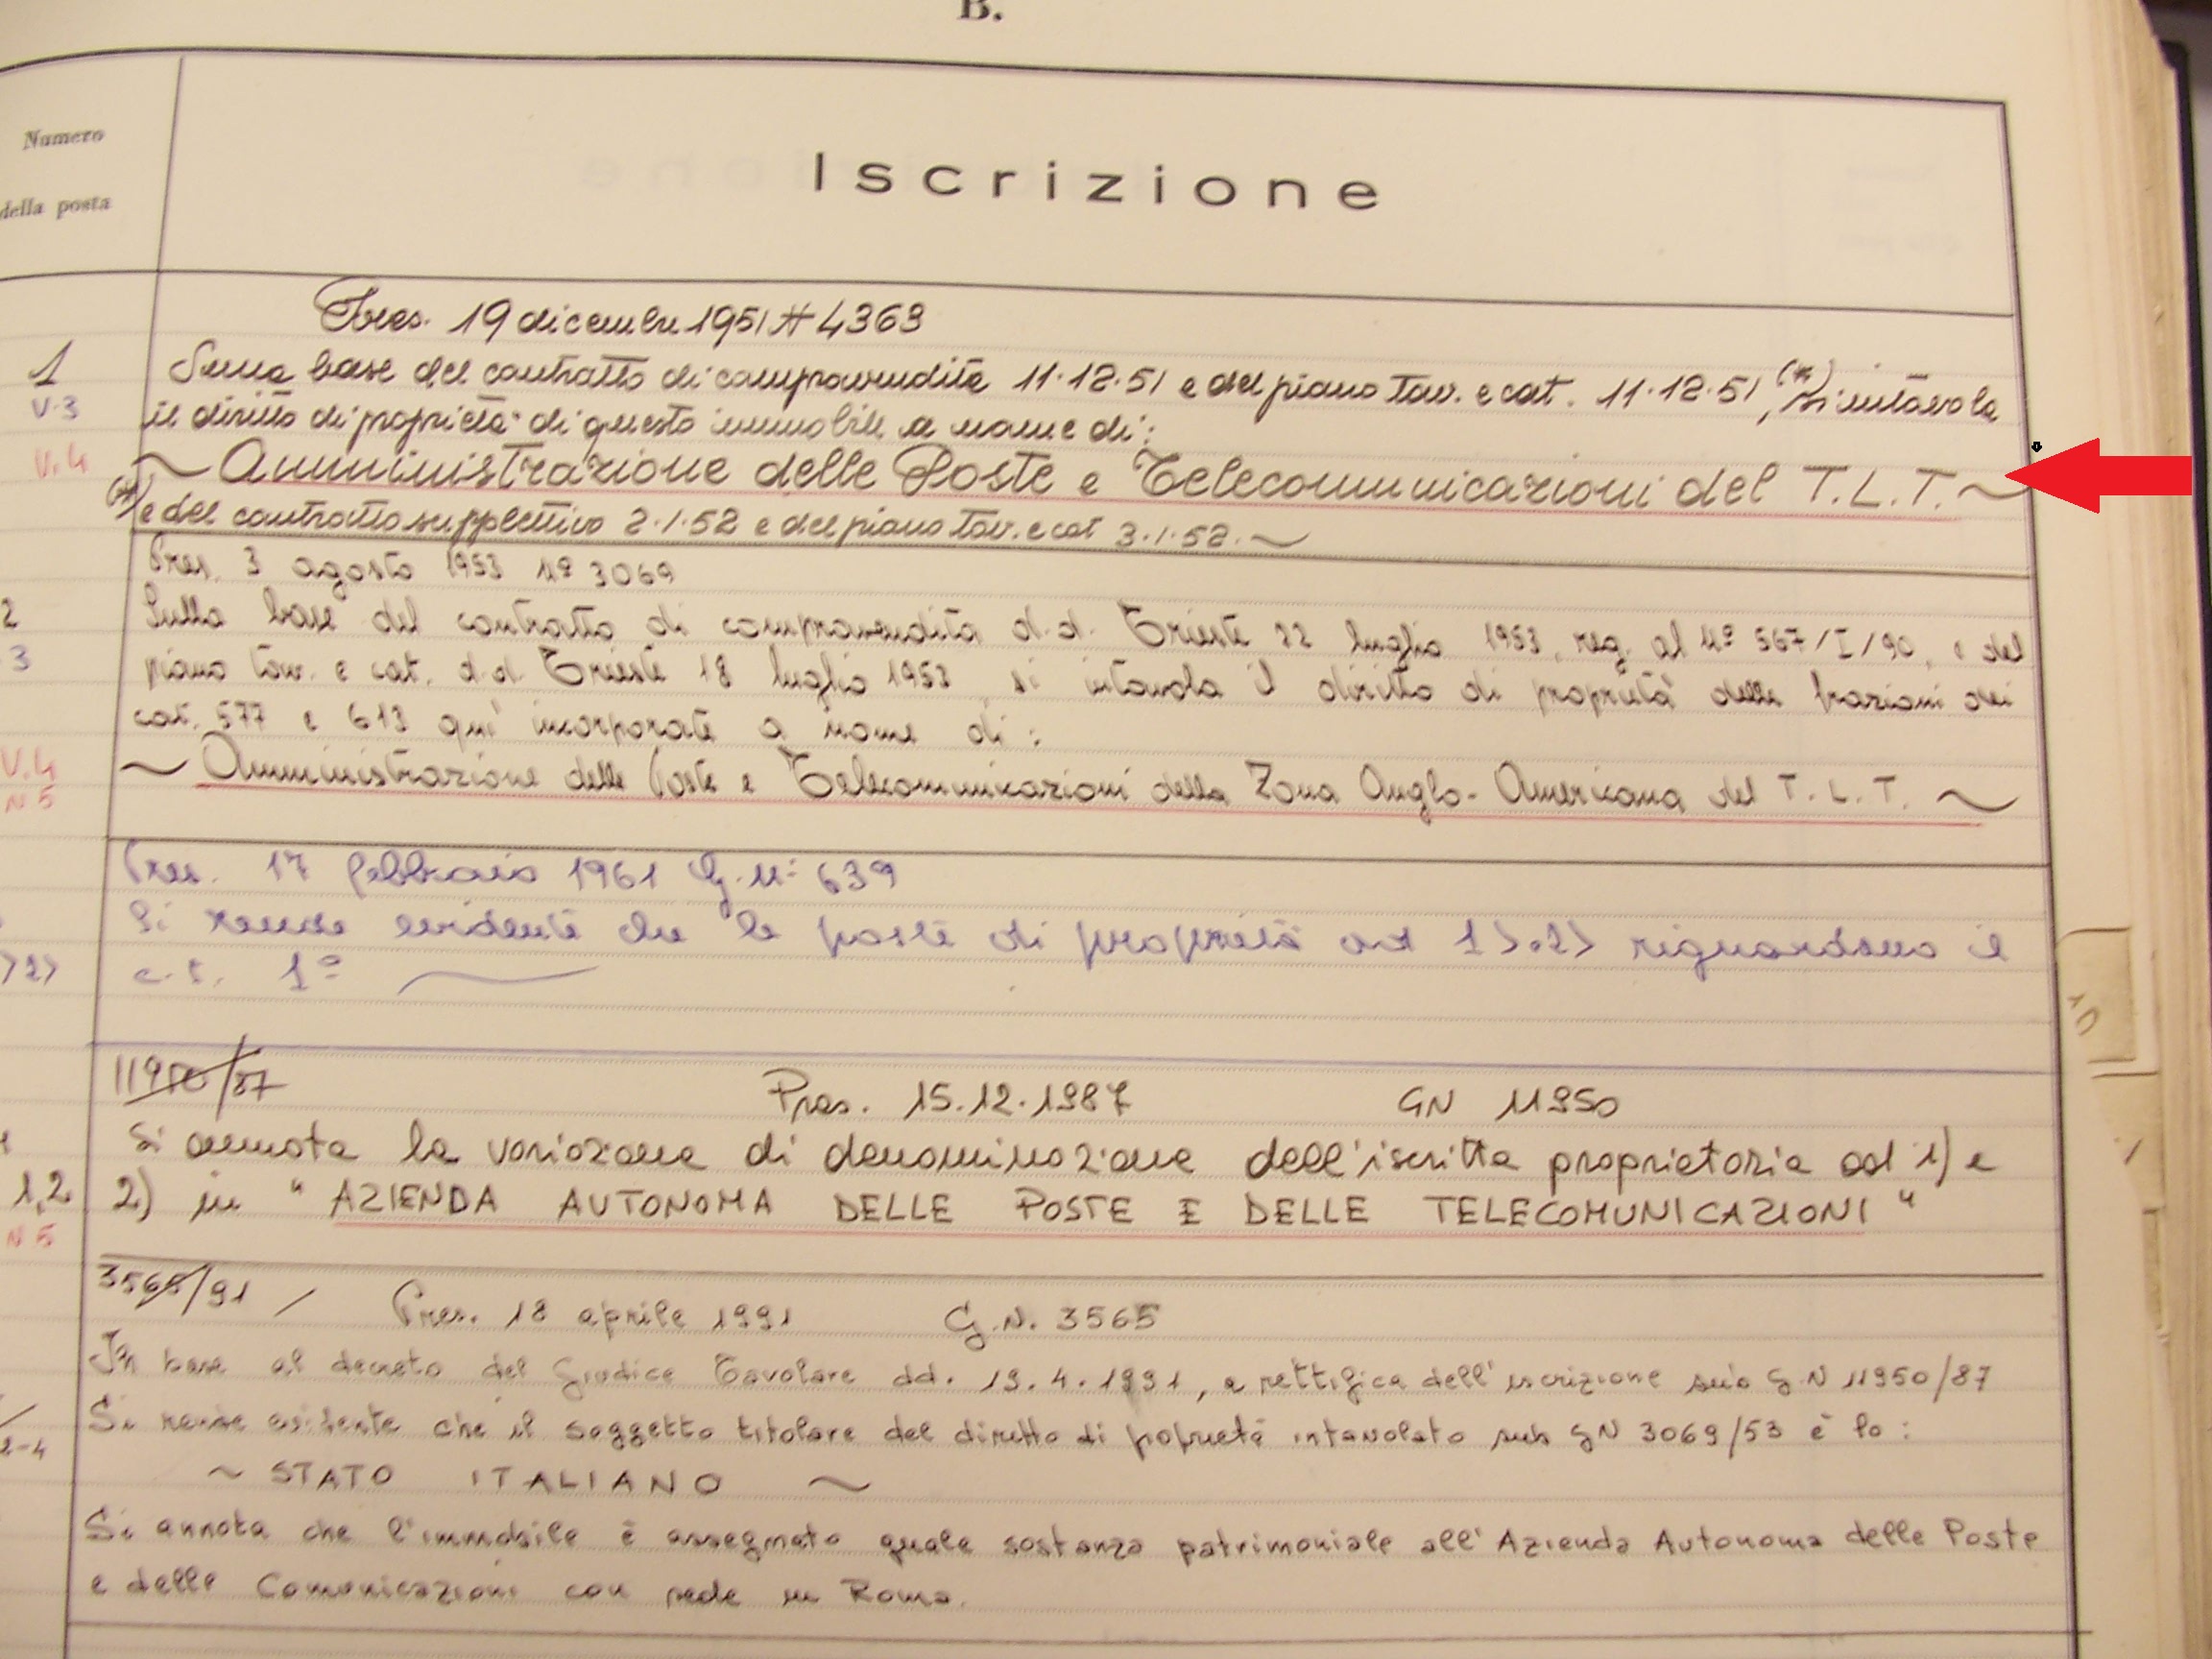 B.
Numero
della posta
Iscrizione
Pres. 19 dicembre 1951 # 4363
1
V.3
V.4
Sulla base del contratto di compravendita 11.12.51 e del piano tav. e cat. 11.12.51, (*) si intavola
il diritto di proprietà di questo immobile a nome di:
~ Amministrazione delle Poste e Telecomunicazioni del T.L.T. ~
(*) e del contratto suppletivo 2.1.52 e del piano tav. e cat 3.1.52. ~
Pres. 3 agosto 1953 Nº 3069
2
3
Sulla base del contratto di compravendita d.d. Trieste 22 luglio 1953, reg. al Nº 567/I/90, e del
piano tav. e cat. d.d. Trieste 18 luglio 1953 si intavola il diritto di proprietà delle frazioni dei
cat. 577 e 613 qui incorporate a nome di:
V.4
N 5
~ Amministrazione delle Poste e Telecomunicazioni della Zona Anglo-Americana del T.L.T. ~
Pres. 17 febbraio 1961 G.N: 639
Si rende evidente che le poste di proprietà ad 1).2) riguardano il
c.t. 1º
)2)
11950/87
Pres. 15.12.1987 GN 11950
Si annota la variazione di denominazione dell'iscritta proprietaria ad 1) e
1,2
N 5
2) in "AZIENDA AUTONOMA DELLE POSTE E DELLE TELECOMUNICAZIONI"
3565/91 / Pres. 18 aprile 1991 G.N. 3565
In base al decreto del Giudice Tavolare dd. 19.4.1991, a rettifica dell'iscrizione sub G N 11950/87
Si rende evidente che il soggetto titolare del diritto di proprietà intavolato sub GN 3069/53 è lo:
2-4
~ STATO ITALIANO ~
Si annota che l'immobile è assegnato quale sostanza patrimoniale all'Azienda Autonoma delle Poste
e delle Comunicazioni con sede in Roma.